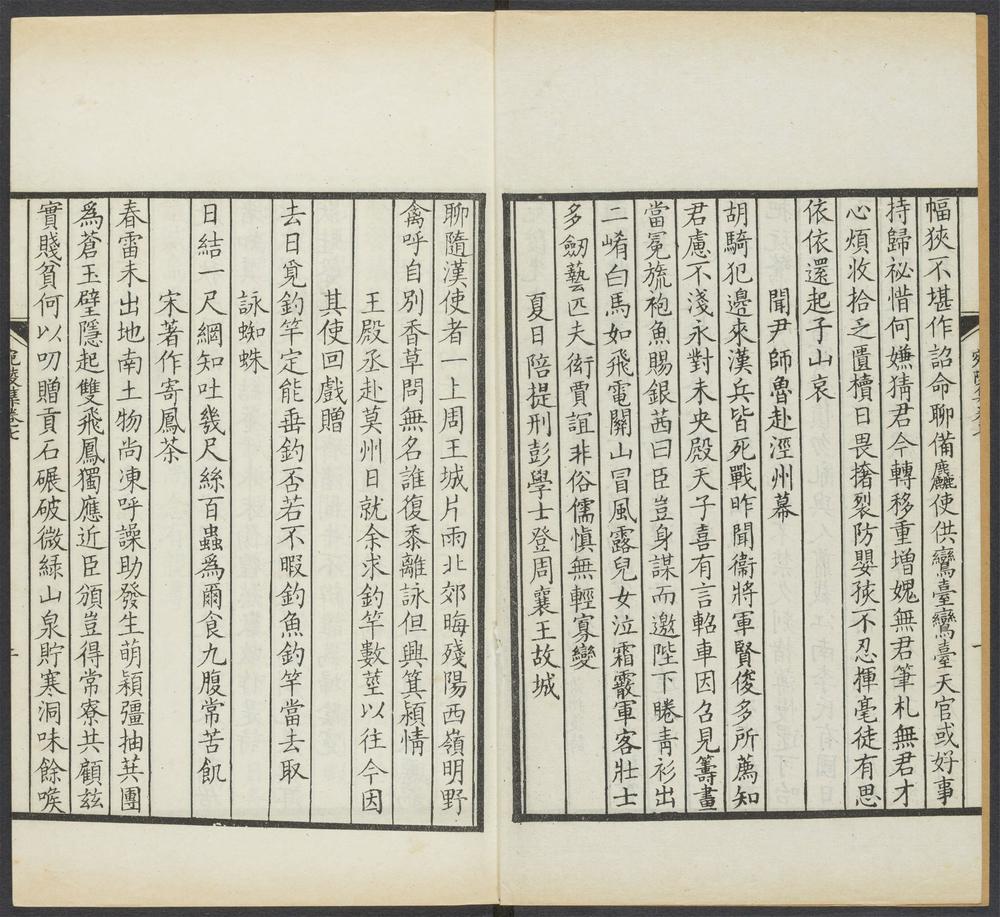 幅狹不堪作詔命聊備麤使供鸞臺鸞臺天官或好事
持歸祕惜何嫌猜君今轉移重增媿無君筆札無君才
心煩收拾乏匱櫝日畏撦裂防嬰孩不忍揮毫徒有思
依依還起子山哀
聞尹師魯赴涇州幕
胡騎犯邊來漢兵皆死戰昨聞衞將軍賢俊多所薦知
君慮不淺求對未央殿天子喜有言軺車因召見籌畫
當冕旒袍魚賜銀茜曰臣豈身謀而邀陛下睠青衫出
二崤白馬如飛電關山冒風露兒女泣霜霰軍客壯士
多劒藝匹夫衒賈誼非俗儒慎無輕寡變
夏日陪提刑彭學士登周襄王故城
聊隨漢使者一上周王城片雨北郊晦殘陽西嶺明野
禽呼自別香草問無名誰復黍離詠但興箕潁情
王殿丞赴莫州日就余求釣竿數莖以往今因
其使回戲贈
去日覓釣竿定能垂釣否若不暇釣魚釣竿當去取
詠蜘蛛
日結一尺網知吐幾尺絲百蟲爲爾食九腹常苦飢
宋著作寄鳳茶
春雷未出地南土物尚凍呼譟助發生萌穎彊抽蕻團
爲蒼玉璧隱起雙飛鳳獨應近臣頒豈得常寮共顧茲
實賤貧何以叨贈貢石碾破微綠山泉貯寒洞味餘喉
宛陵集卷七